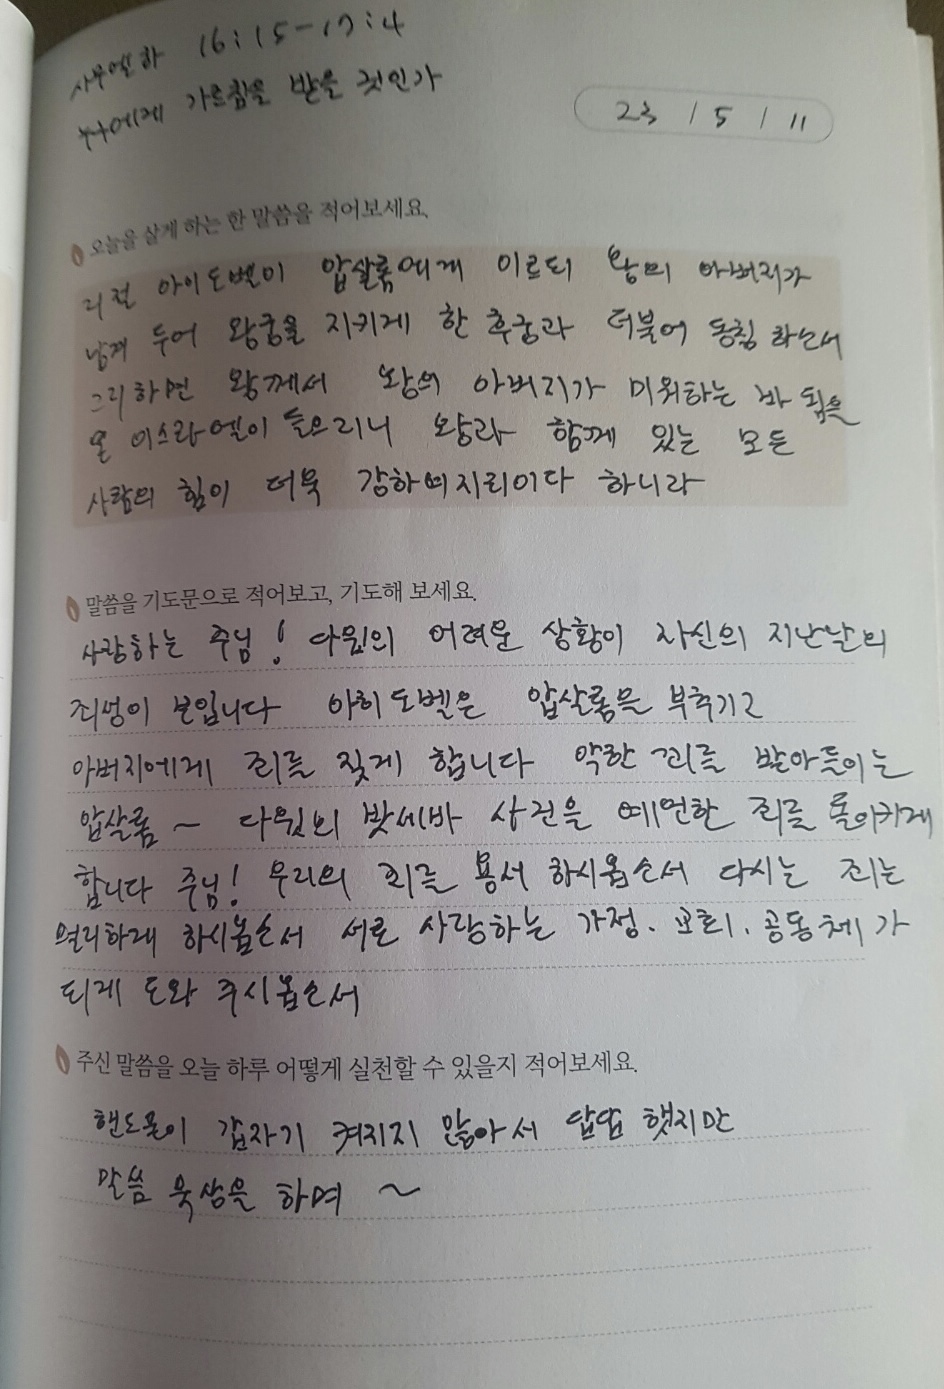 사무엘하 16:15-17:4
누구에게 가르침을 받을 것인가
23 / 5 / 11
오늘을 살게 하는 한 말씀을 적어보세요.
아이도벨이 압살롬에게 이르되 왕의 아버지가
남겨 두어 왕궁을 지키게 한 후궁과 더불어 동침 하소서
그리하면 왕께서 왕의 아버지가 미워하는 바 됨을
온 이스라엘이 들으리니 왕과 함께 있는 모든
사람의 힘이 더욱 강하여지리이다 하니라
말씀을 기도문으로 적어보고, 기도해 보세요.
사랑하는 주님! 다윗의 어려운 상황이 자신의 지난날의
죄성이 보입니다 아히도벨은 압살롬을 부추기고
아버지에게 죄를 짖게 합니다 악한 꾀를 받아들이는
압살롬 ~ 다윗의 밧세바 사건을 예언한 죄를 돌이키게
합니다 주님! 우리의 죄를 용서 하시옵소서 다시는 죄는
멀리하게 하시옵소서 서로 사랑하는 가정. 교회. 공동체가
되게 도와 주시옵소서
주신 말씀을 오늘 하루 어떻게 실천할 수 있을지 적어보세요.
핸드폰이 갑자기 켜지지 않아서 답답 했지만
말씀 묵상을 하며 ~